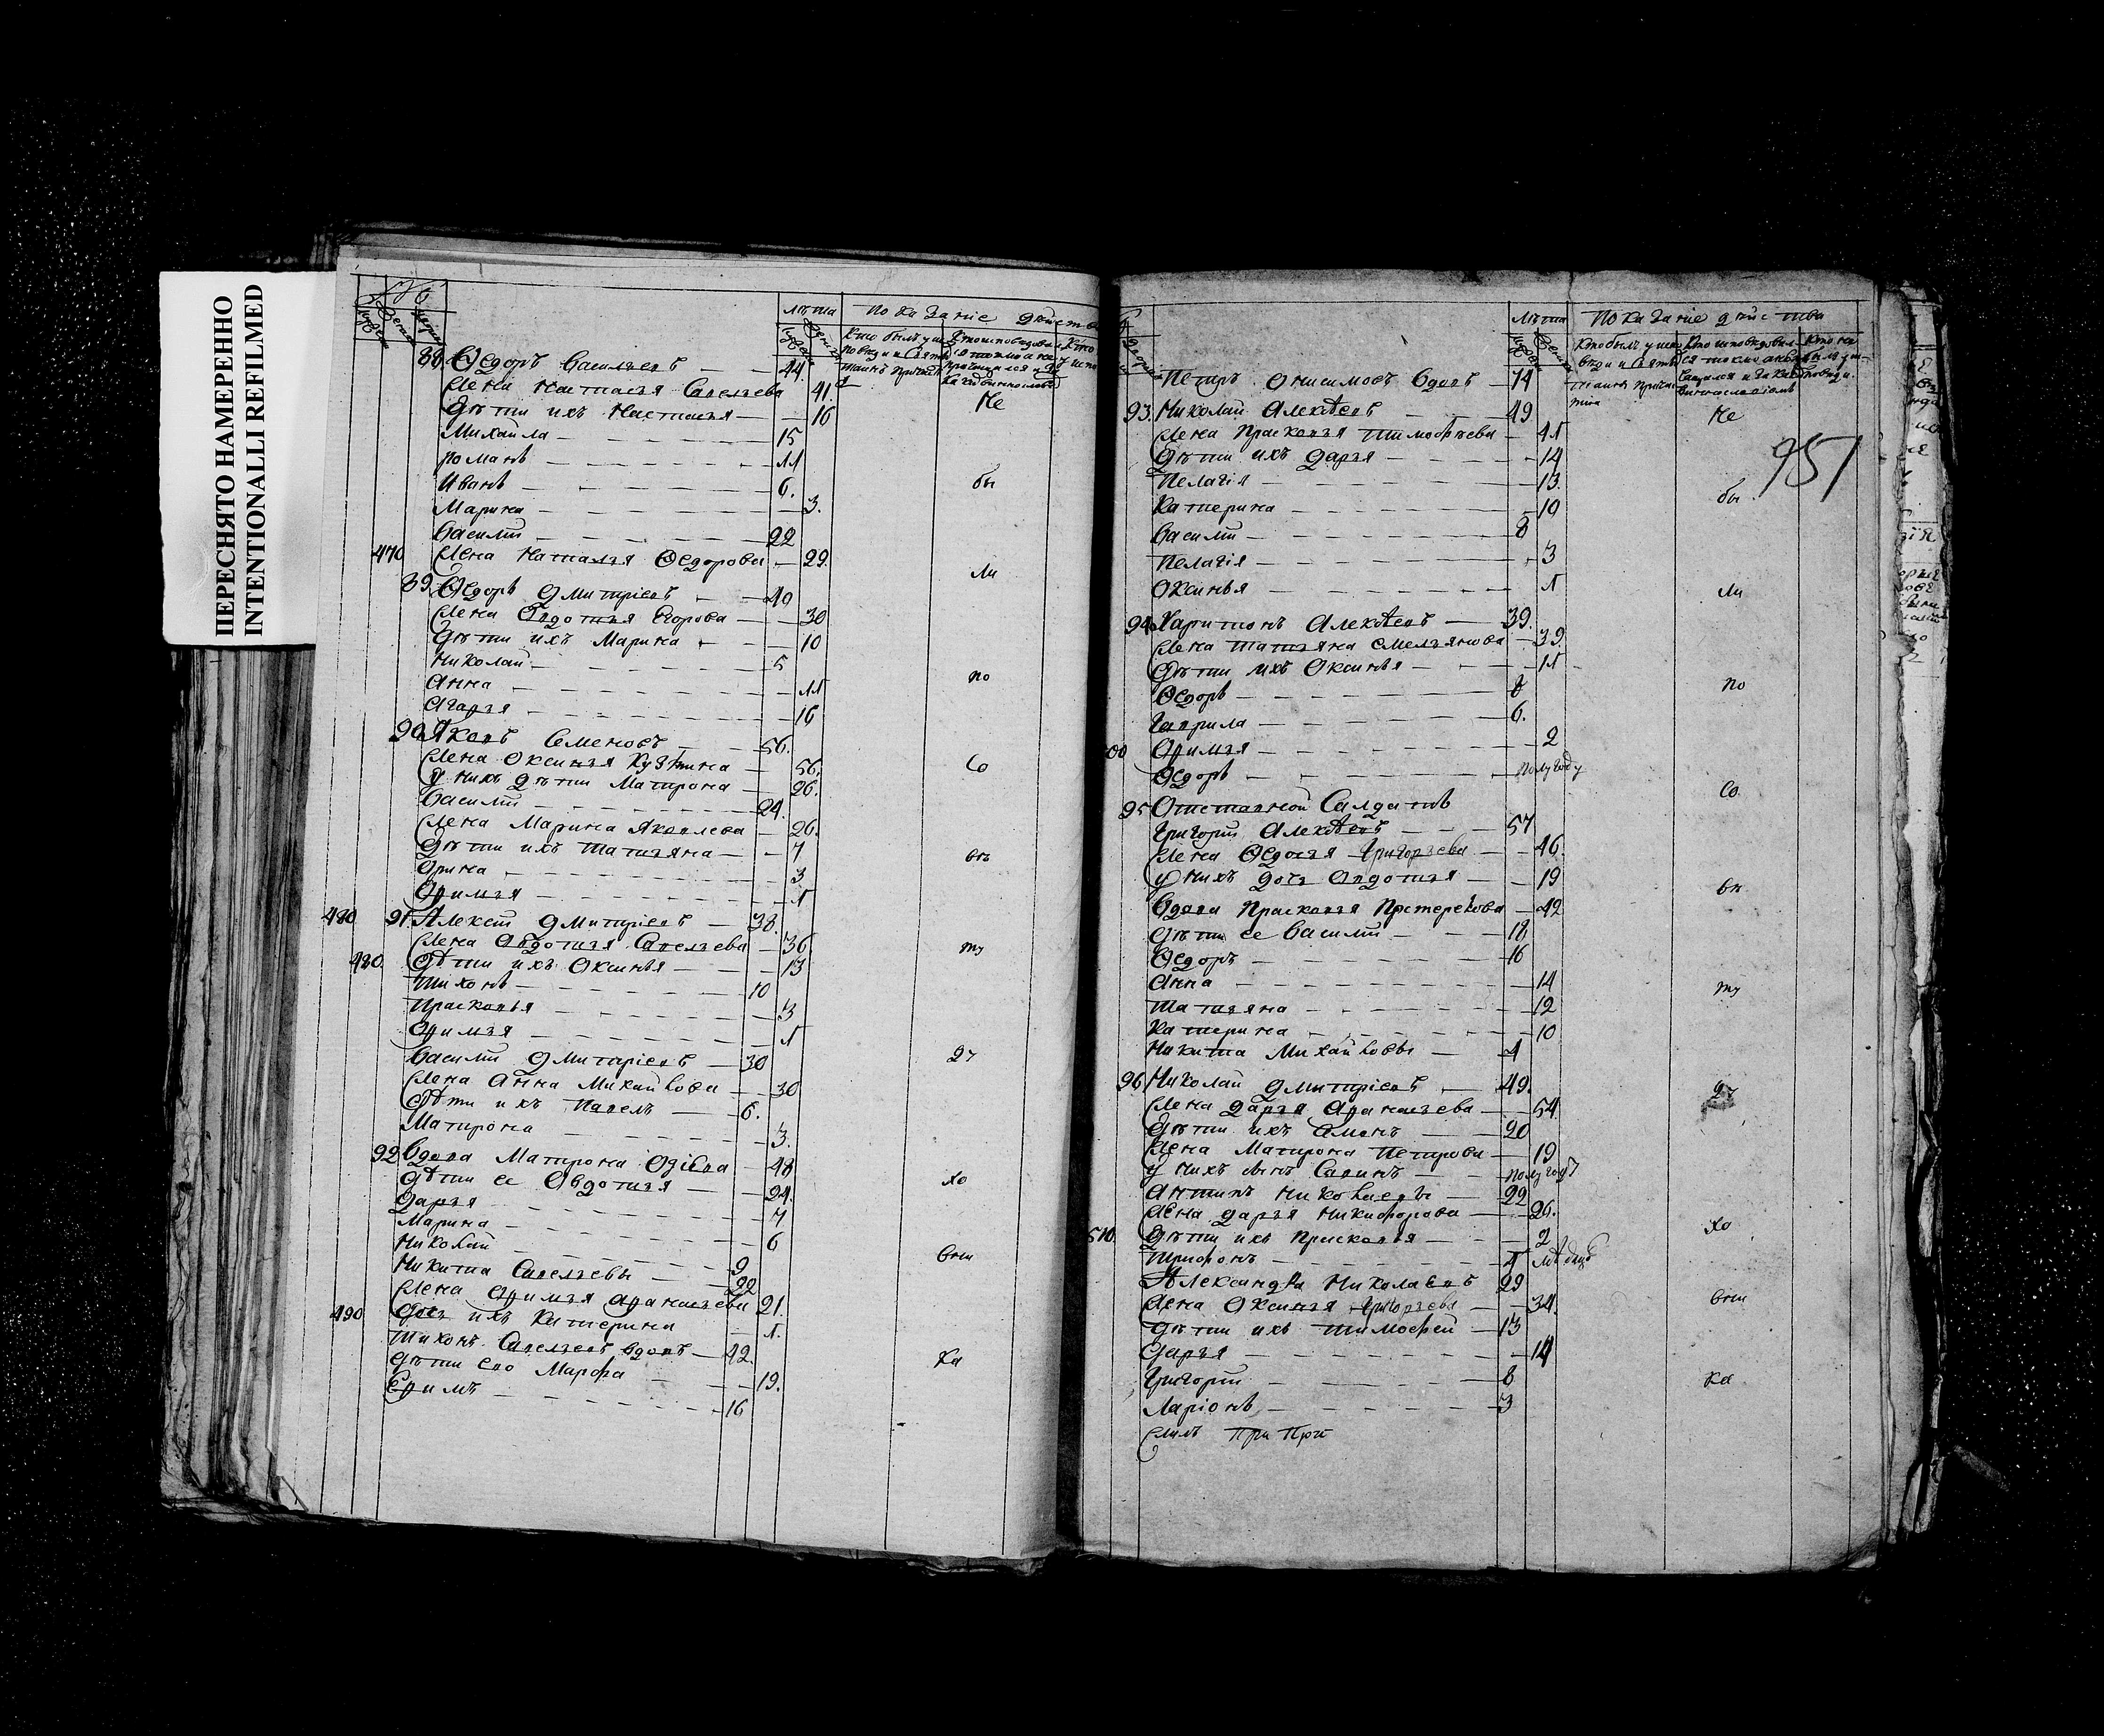 ПЕРЕСНЯТО НАМЕРЕННО
INTENTIONALLI REFILMED
Лѣта Показание действа
88 Ѳедоръ Васильевъ 44
Жена Настасья Савельева 41
Дѣти ихъ Настасья 16 Не
Михайла 15
Романъ 11
Иванъ 6 бы
Марина 3
Василий 22
470 Жена Наталья Ѳедорова 29 ли
89 Ѳедоръ Дмитріевъ 40
Жена Овдотья Егорова 30
Дѣти ихъ Марина 10
Николай 5
Анна 11 по
Агафья 16
90 Яковъ Семеновъ 56
Жена Оксинья Кузмина 56 Со
У нихъ дѣти Матрона 26
Василий 24
Жена Марина Яковлева 26
Дѣти ихъ Татьяна 7
Орина 3 въ
Офимья 1
480 91 Алексей Дмитріевъ 38
Жена Овдотья Савельева 36
480 Дѣти ихъ Оксинья 13 ту
Тихонъ 10
Прасковья 3
Офимья 1
Василий Дмитріевъ 30
Жена Анна Михайлова 30
Дѣти ихъ Павелъ 6
Матрона 3
92 Вдова Матрона 48
Дѣти ее Овдотья 24 хо
Дарья 7
Марина 6
Николай 9
Никита Савельевы 22
Жена Офимья Афанасьева 21
490 Дочь ихъ Катерина 1
Тихонъ Савельевъ вдовъ 42
Дѣти ево Марфа 19 ка
Ефимъ 16
Лѣта Показание действа
Петръ Онисимовъ вдовъ 74
93 Николай Алексѣевъ 49 Не
Жена Прасковья Тимофѣева 41
951
Дѣти ихъ Дарья 14
Пелагія 13
Катерина 10 бы
Василий 8
Пелагія 3
Оксинья 1 ли
94 Харитонъ Алексѣевъ 39
Жена Татьяна Емельянова 39
Дѣти ихъ Оксинья 11
Ѳедоръ 8 по
Гаврила 6
00 Офимья 2
Ѳедоръ полугоду
95 Отставной Салдатъ Со
Григорий Алексѣевъ 57
Жена Ѳедосья Григорьева 46
У нихъ дочь Овдотья 19 въ
Вдова Прасковья 42
Дѣти ее Василий 18
Ѳедоръ 16
Анна 14 ту
Татьяна 12
Катерина 10
Никита Михайловы 4
96 Николай Дмитріевъ 49
Жена Дарья Афанасьева 54
Дѣти ихъ 20
Жена Матрона Петрова 19
У нихъ сынъ Савинъ полугоду
Антипъ Николаевъ 22
Жена Дарья Никифорова 26
510 Дѣти ихъ Прасковья 2 хо
Трифонъ
Александра Николаевъ 29
Жена Оксинья Григорьева 34
Дѣти ихъ Тимофей 13
Дарья 14
Григорий 8 ка
Ларіонъ 3